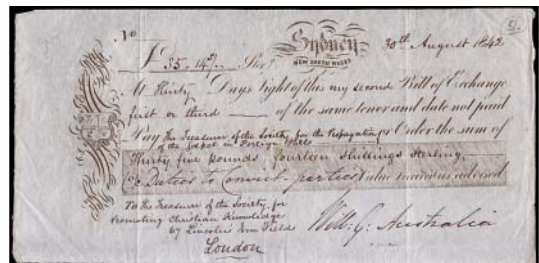 No
51.
Sydney
NEW SOUTH WALES
30th August 1842
£ 35.14/.. Ster
At Thirty Days Sight of this my second Bill of Exchange
first or third of the same tenor and date not paid
Pay The Treasurer of the Society for the Propagation or Order the sum of
of the Gospel in Foreign
Thirty five pounds, fourteen Shillings Sterling,
to Convict value received as advised
To the Treasurer of the Society for
Promoting Christian Knowledge
67 Lincoln's Inn Fields
London
Will: G: Australia